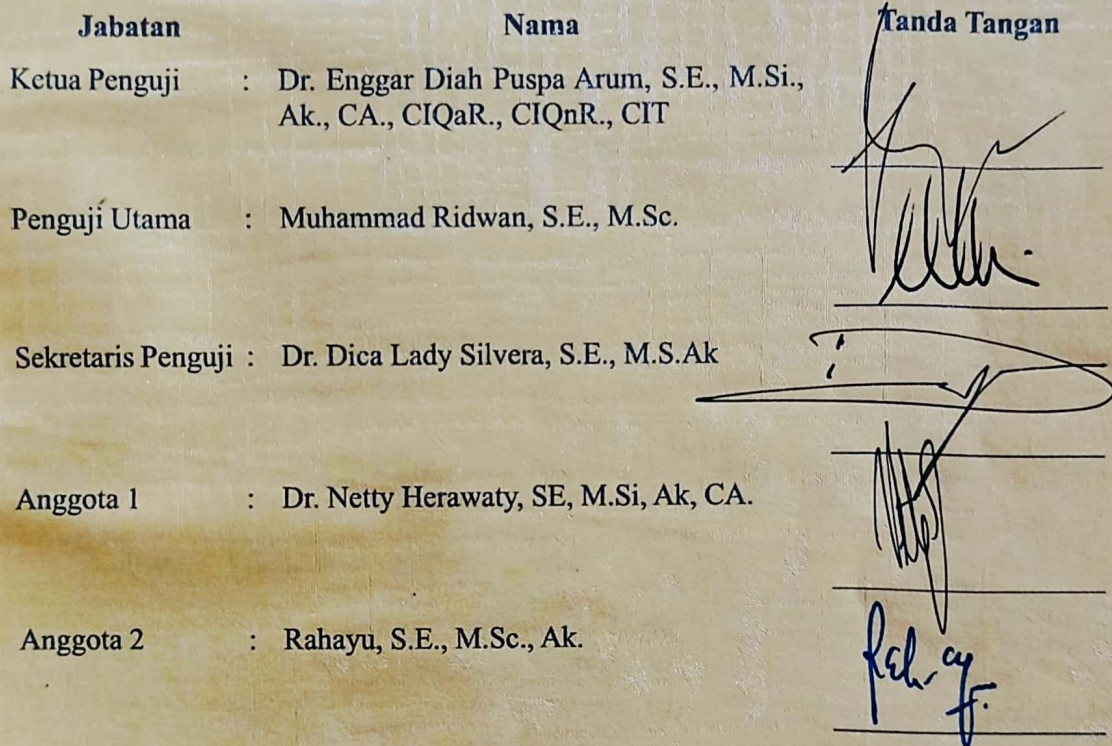 Jabatan Nama Tanda Tangan
Ketua Penguji : Dr. Enggar Diah Puspa Arum, S.E., M.Si.,
Ak., CA., CIQaR., CIQnR., CIT
Penguji Utama : Muhammad Ridwan, S.E., M.Sc.
Sekretaris Penguji : Dr. Dica Lady Silvera, S.E., M.S.Ak
Anggota 1 : Dr. Netty Herawaty, SE, M.Si, Ak, CA.
Anggota 2 : Rahayu, S.E., M.Sc., Ak.